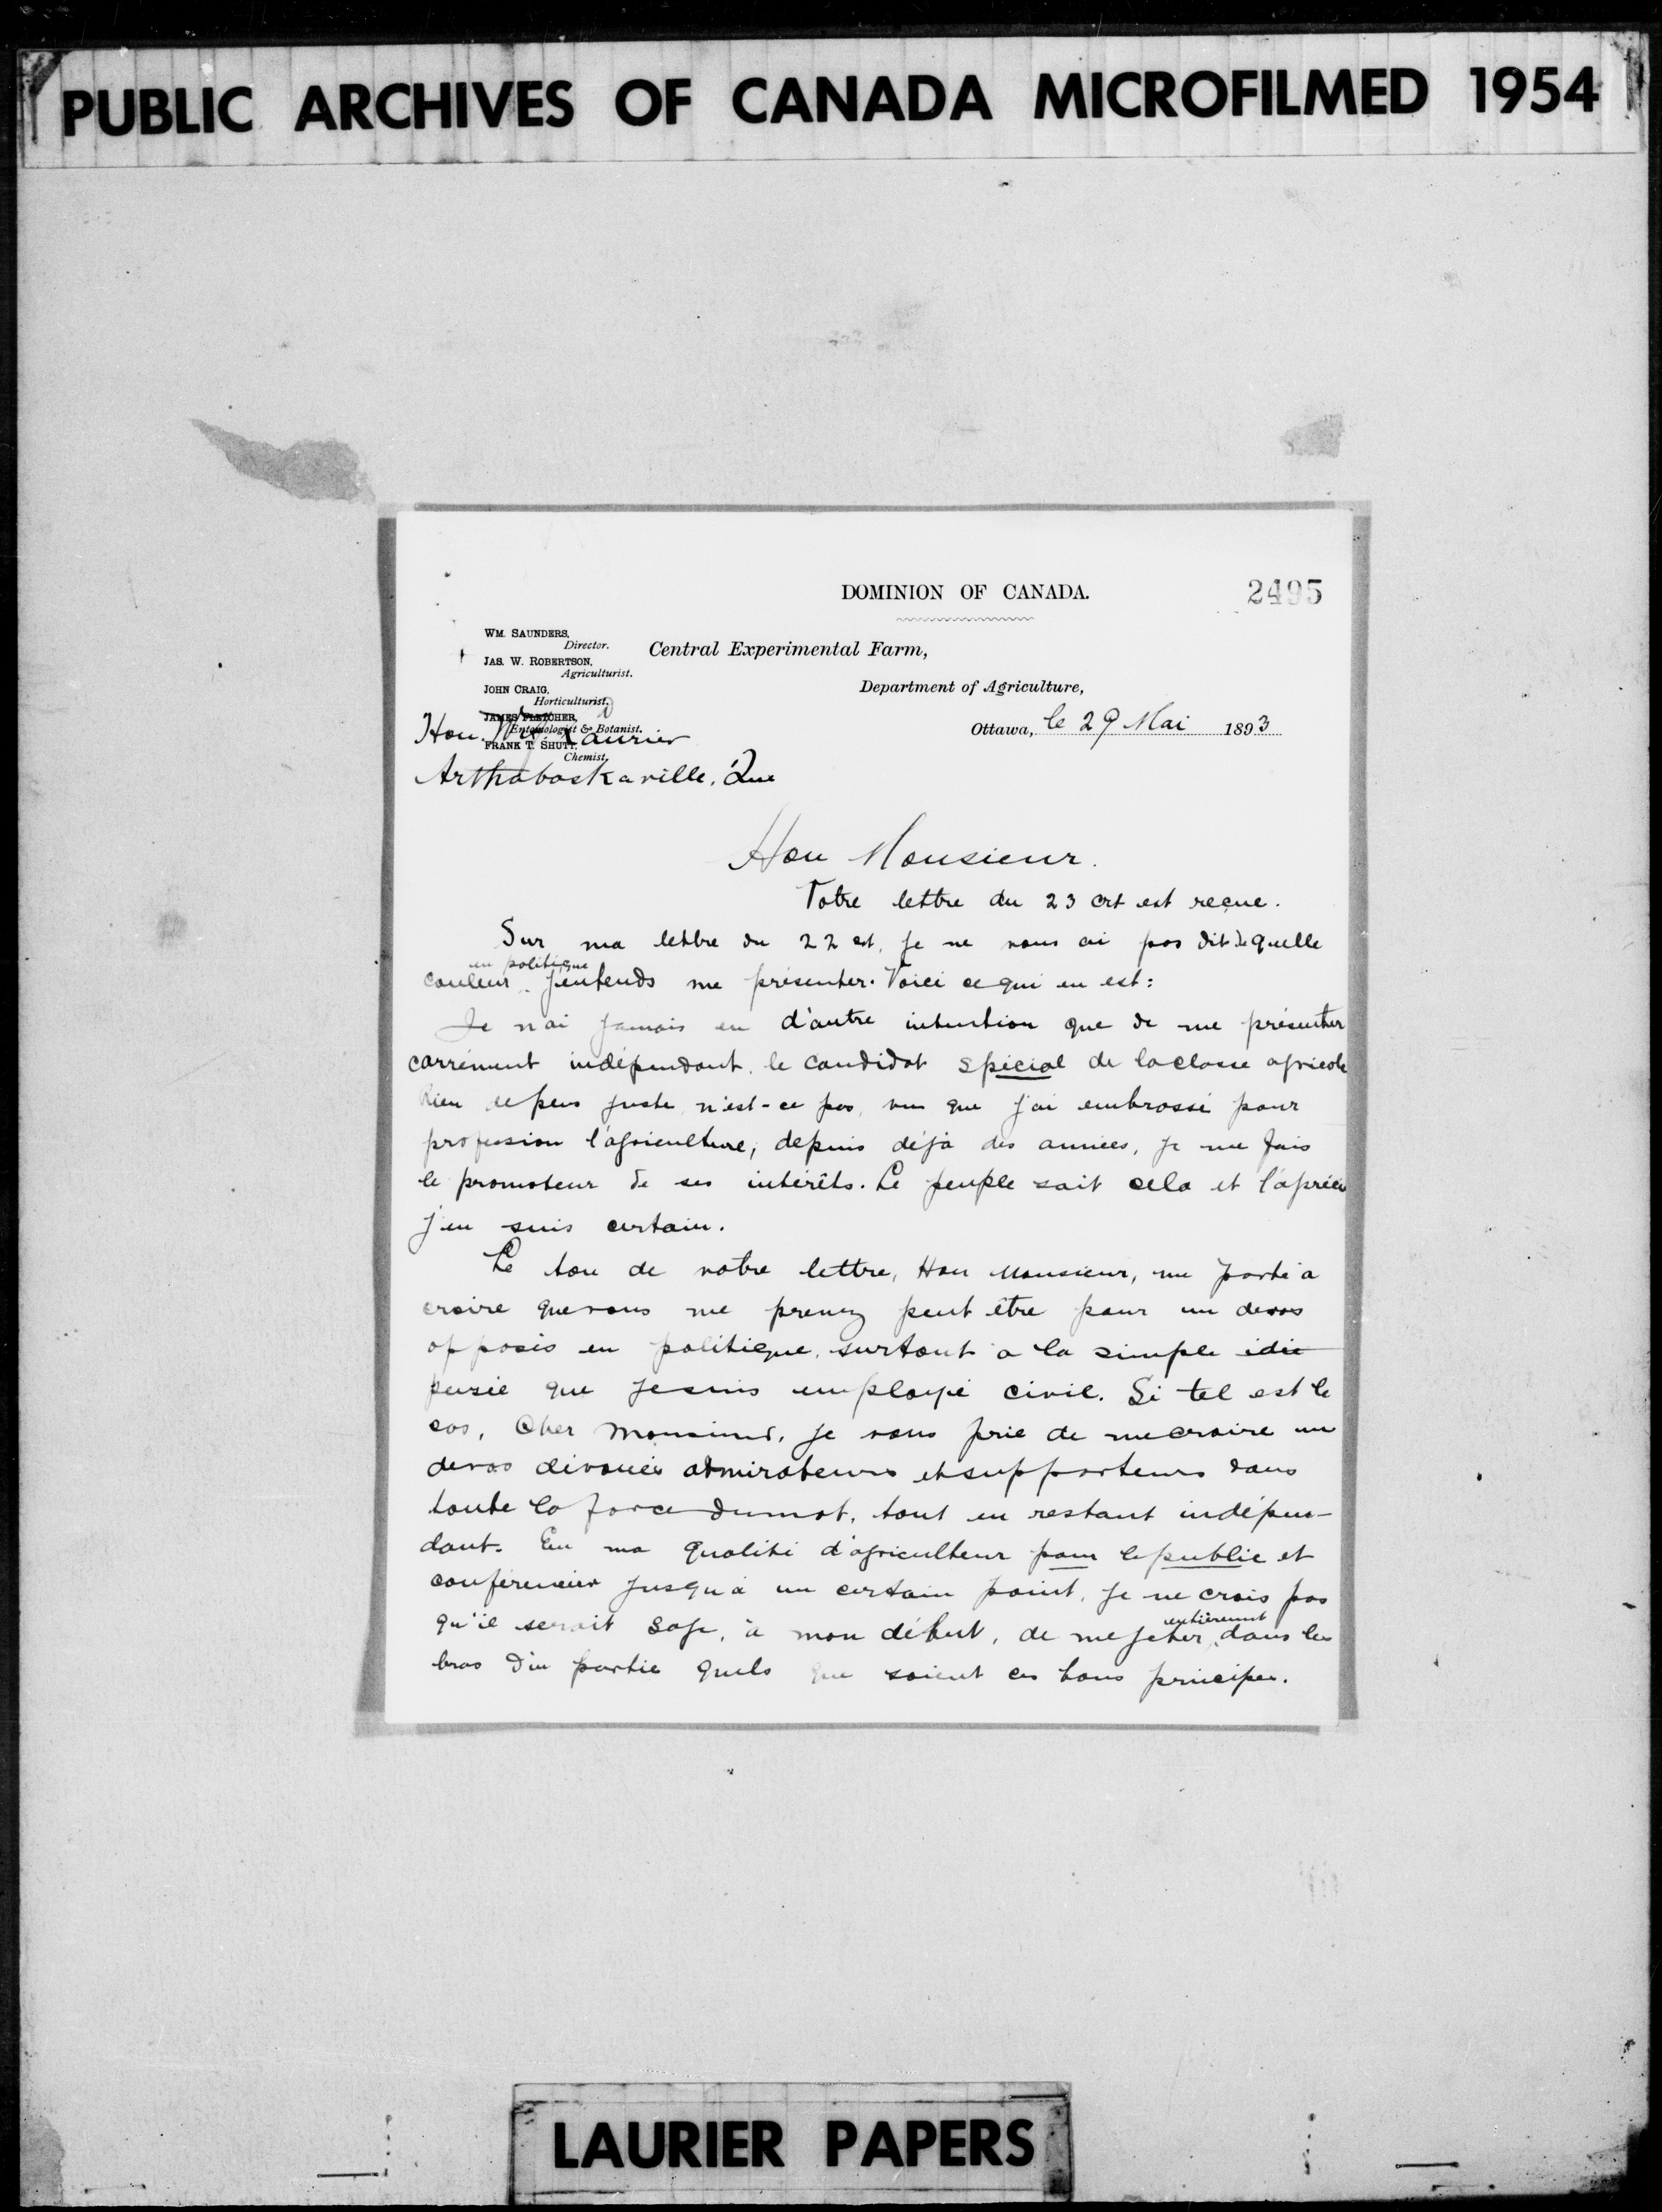 PUBLIC ARCHIVES OF CANADA MICROFILMED 1954
DOMINION OF CANADA.
2495
WM. SAUNDERS,
Director.
JAS. W. ROBERTSON,
Agriculturist.
JOHN CRAIG,
Horticulturist.
JAMES FLETCHER,
Entomologist & Botanist.
FRANK T. SHUTT,
Chemist.
Central Experimental Farm,
Department of Agriculture,
Ottawa, le 29 Mai 1893
Hon. Laurier
Arthabaskaville, Que
Hon Monsieur.
Votre lettre du 23 crt est reçue.
Sur ma lettre du 22 crt, je ne vous ai pas dit de quelle
en politique
couleur j'entends me présenter. Voici ce qui en est:
Je n'ai jamais eu d'autre intention que de me présenter
carrément indépendant, le candidat spécial de la classe agricole
Rien de plus juste, n'est-ce pas, vu que j'ai embrassé pour
profession l'agriculture, depuis déjà des années, je me fais
le promoteur de ses intérêts. Le peuple sait cela et
j'en suis certain.
Le ton de votre lettre, Hon Monsieur, me porte à
croire que vous me prenez peut être pour un de vos
opposés en politique, surtout à la simple idée
pensée que je suis employé civil. Si tel est le
cas, Cher Monsieur, je vous prie de me croire un
de vos dévoués admirateurs et supporteurs dans
toute la force du mot, tout en restant indépen-
dant. En ma qualité d'agriculteur pour le public et
conférencier jusqu'à un certain point, je ne crois pas
qu'il serait sage, à mon début, de me jeter entièrement dans les
bras d'un partie quels que soient ces bons principes.
LAURIER PAPERS